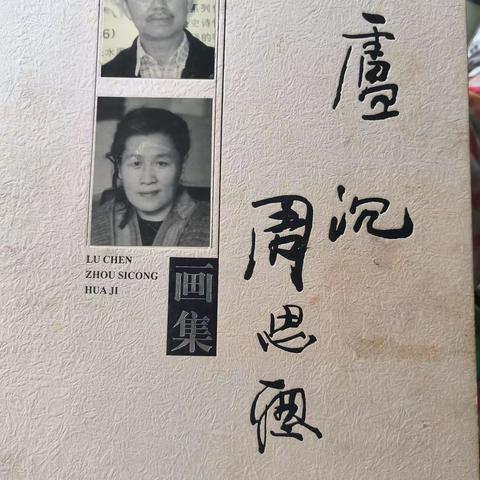 盧沉
周思聰
LU CHEN
ZHOU SICONG
HUA JI
画集